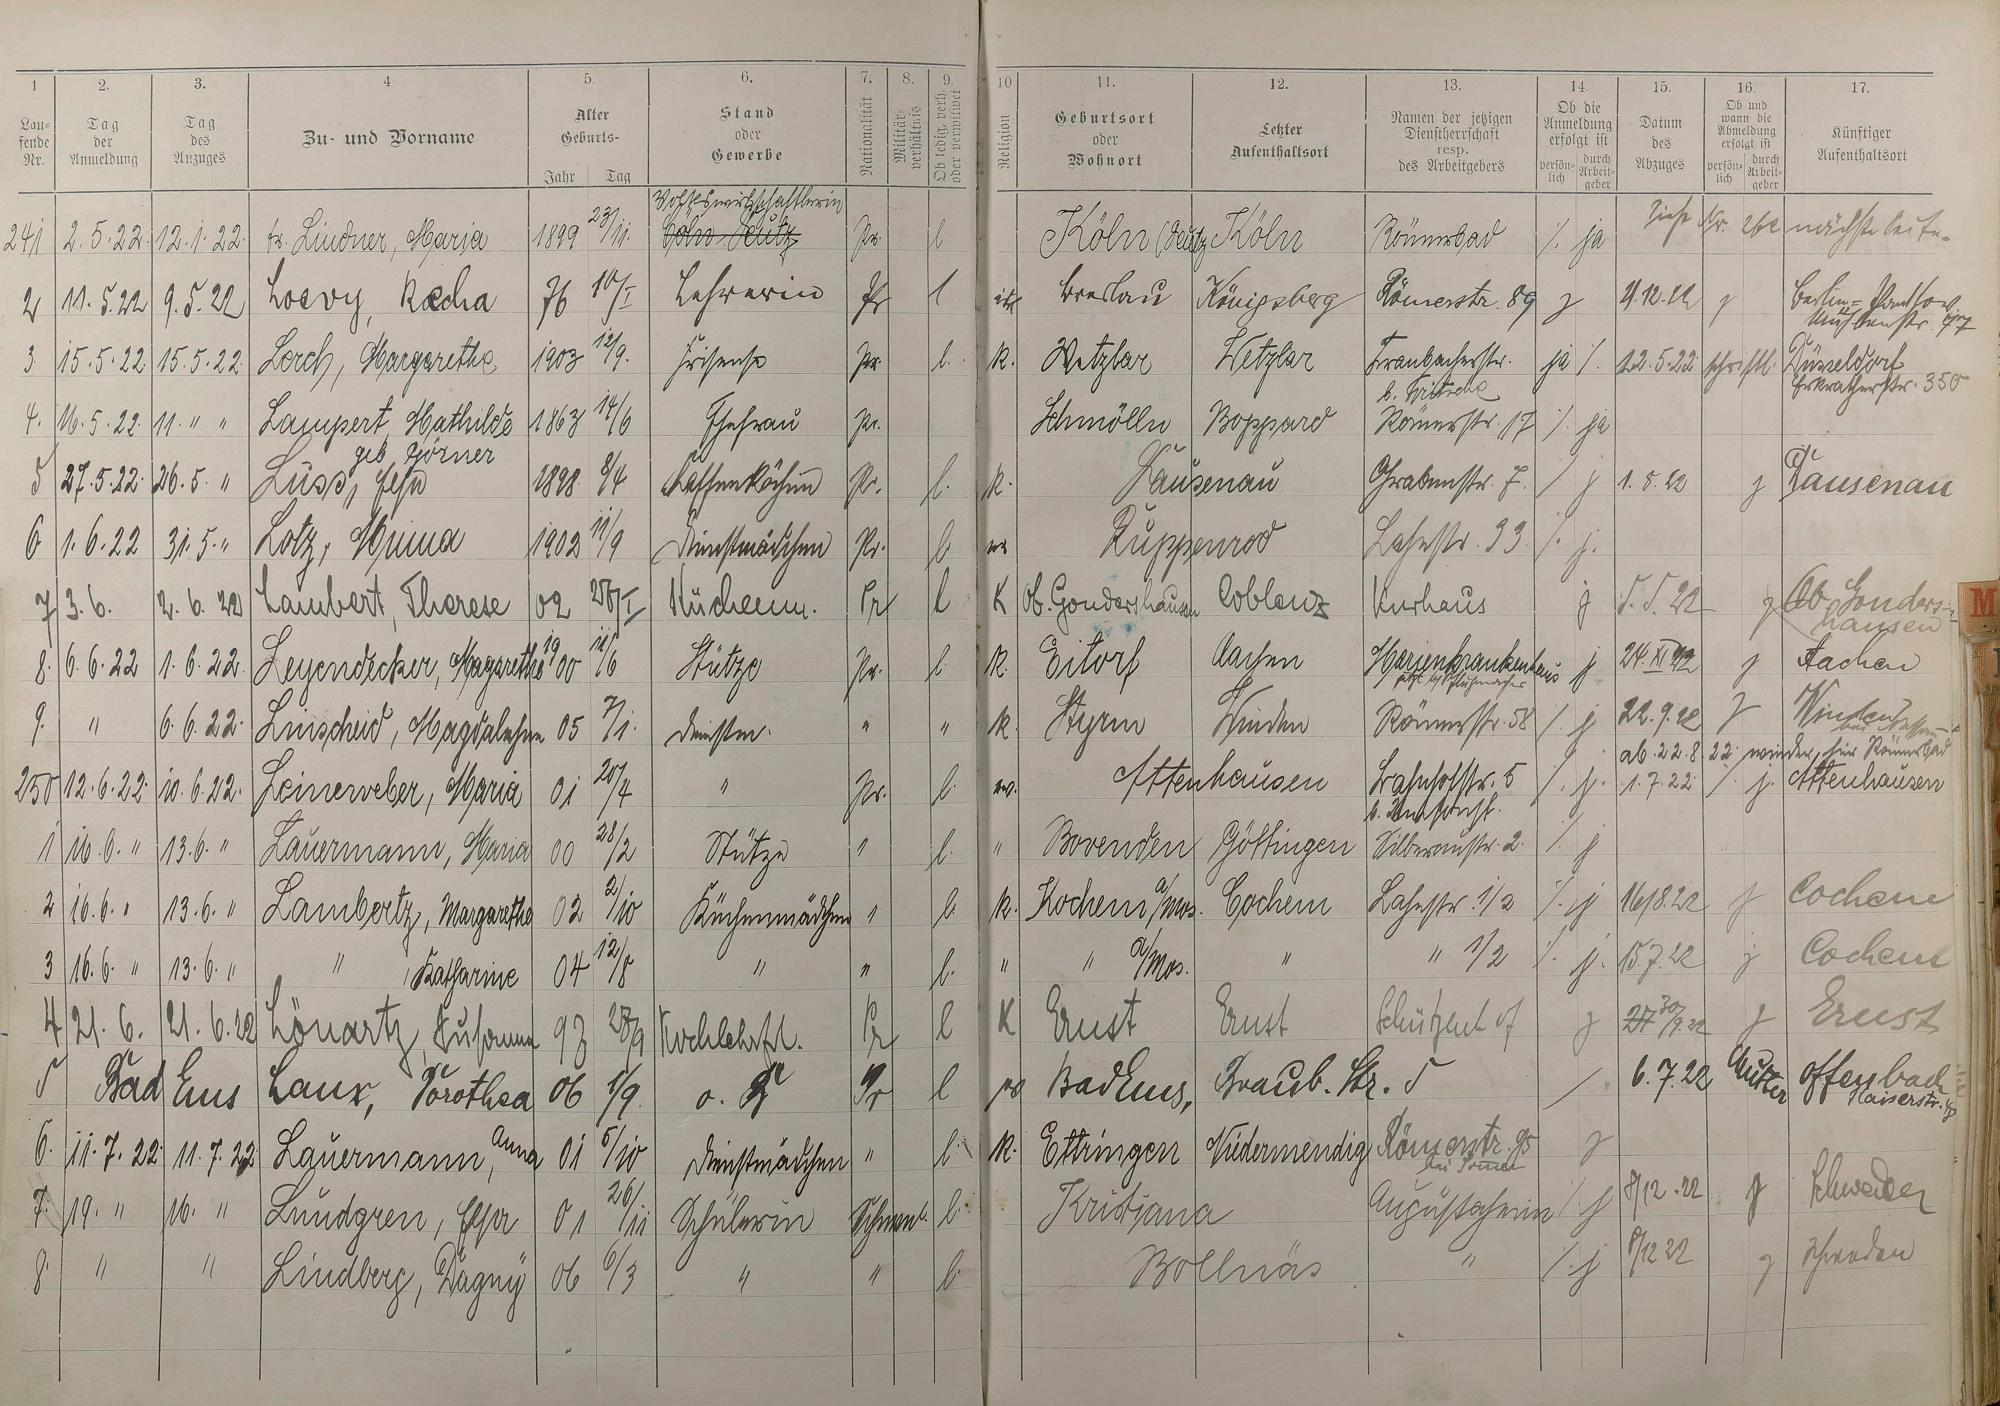 1 2. 3. 4 5. 6. 7. 8. 9. 10 11. 12. 13. 14 15. 16. 17.
Lau-fende Nr. Tag der Anmeldung Tag des Anzuges Zu- und Vorname Alter Geburts- Jahr Tag Stand oder Gewerbe Nationalität Militär-verhältnis Ob ledig, verh. oder verwitwet Religion Geburtsort oder Wohnort Letzter Aufenthaltsort Namen der jetzigen Dienstherrschaft resp. des Arbeitgebers Ob die Anmeldung erfolgt ist persön-lich durch Arbeit-geber Datum des Abzuges Ob und wann die Abmeldung erfolgt ist persön-lich durch Arbeit-geber Künftiger Aufenthaltsort
Volkswirtschaftlerin
241 2.5.22. 12.1.22. Lindner, Maria 1899 23/11. Cöln Deutz Pr. l Köln (Deutz Köln Römerbad /. ja Siehe Nr. 262 nächste Seite.
2 11.5.22 9.5.22 Loevy, Recha 76 10/I Lehrerin Pr l isr Breslau Königsberg Römerstr. 89 j j Berlin-Pankow
3 15.5.22 15.5.22 Lerch, Margarethe 1903 12/9. Friseuse Pr l. k. Wetzlar Wetzlar ja /. 12.5.22 schriftl. Düsseldorf
Erkratherstr. 350
4. 16.5.22. 11. " " Lampert, Mathilde 1863 14/6 Ehefrau Pr. Schmölln Boppard Römerstr. 17 /. ja
geb. Görner
5 27.5.22. 26.5. " Luss, 1898 8/4 Kaffeeköchin Pr. l. k. Dausenau Grabenstr. 7. / j 1.8.22 j Dausenau
6 1.6.22 31.5. " Lotz, Minna 1902 11/9 Dienstmädchen Pr. l. ev Ruppenrod Lahnstr. 33. /. j.
7 3.6. 2.6.22 Lambert, Therese 02 28/I Küchenm. Pr l K Ob. Gondershausen Coblenz Kurhaus j 5.5.22 j Ob Gonders-
hausen
8. 6.6.22 1.6.22. Leyendecker, Margarethe 1900 11/6 Stütze Pr. l. k. Eitorf Aachen Marienkrankenhaus j 24.XI 22 j Aachen
9. " 6.6.22. Linscheid, Magdalehne 05 7/1. Dienstm. " " k. Winden Römerstr. 58 /. j 22.9.22 j Winden
ab 22.8.22. wieder, für Römerbad
250 12.6.22. 10.6.22. Leineweber, Maria 01 20/4 " Pr. l. ev. Attenhausen Bahnhofstr. 5 /. j. 1.7.22 /. j. Attenhausen
1 16.6. " 13.6. " Lauermann, Maria 00 28/2 Stütze " l. " Bovenden Göttingen Silberaustr. 2. /. j
2 16.6. " 13.6. " Lambertz, Margaretha 02 2/10 Küchenmädchen " l. k. Kochem a/Mos. Cochem Lahnstr. 1/2 /. j 16/8.22 j Cochem
3 16.6. " 13.6. " " , Katharine 04 12/8 " " l. " " a/Mos. " " 1/2 /. j. 15.7.22 j Cochem
4 21.6. 21.6.22 Lönartz, Susanna 97 Kochlehrfrl. Pr l K Ernst Ernst Schützenhof j 30/9.22 j Ernst
5 Bad Ems Laux, Dorothea 06 1/9 o. Pr l ev Bad Ems, Graub. Str. 5 / 6.7.22 Mutter Offenbach
Kaiserstr.
6. 11.7.22 11.7.22 Lauermann, Anna 01 5/10 Dienstmädchen " l. k. Ettringen Niedermendig Römerstr. 95 j
7. 19. " 16. " Lundgren, 01 26/11 Schülerin Schwed. l. Kristjana Augustaheim / j 8/12.22 j Schweden
8. " " Lindberg, Dagny 06 6/3 " " l. Bollnäs " /. j 8/12 22 j Schweden
M